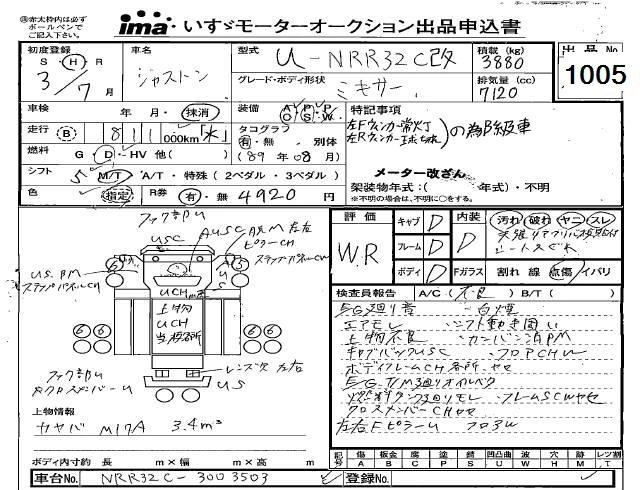 ※赤太枠内は必ず
ボールペンで
ご記入下さい。
ima いすゞモーターオークション出品申込書
初度登録
S・H・R
3/7月
車名
ジャストン
型式
U-NRR32C改
積載 (kg)
3880
グレード・ボディ形状
ミキサー
排気量 (cc)
7120
出品 No
1005
車検 年 月・抹消
装備 A/C P/S P/W
走行 B 811,000km「水」
タコグラフ
有・無 別体
(89年08月)
燃料 G・D・HV 他( )
シフト 5 M/T / A/T・特殊(2ペダル・3ペダル)
色 指定 R券 有・無 4920円
特記事項
左Fウィンカー常灯
左Rウィンカー球切れ
の為B級車
メーター改ざん
架装物年式:( 年式)・不明
※不明の場合は、不明に○をする。
評価
W.R
キャブ D
フレーム D
ボディ D
内装 D
汚れ 破れ ヤニ スレ
シートスグレ
Fガラス 割れ 線 点傷 イバリ
検査員報告 A/C(不良) B/T( )
E/G廻り音 白煙
エアモレ シフト動き固い
上物不良 カンバン消PM
キャブバックUSC フロアCHU
ボディフレームCH 各所サセ
E/G・T/M廻りオイルボケ
フレームSCWサセ
クロスメンバーCHサセ
左右FピラーU フロアW
USC
AUSC ARM 左右
ピラーCH
ステップパネルCH
US.PM
ステップパネルCH
UCH
上物
UCH
6 6
6 6
レンズ欠 左右
US
クロスメンバーU
上物情報
カヤバ M17A 3.4m³
ボディ内寸約 長 m×幅 m×高 m
記号
傷 A 板金 B 腐 C 塗 P 錆 S 凹凸曲 U 波 W 穴 H 跡 M レツ割 T
車台No. NRR32C-3003503
登録No.